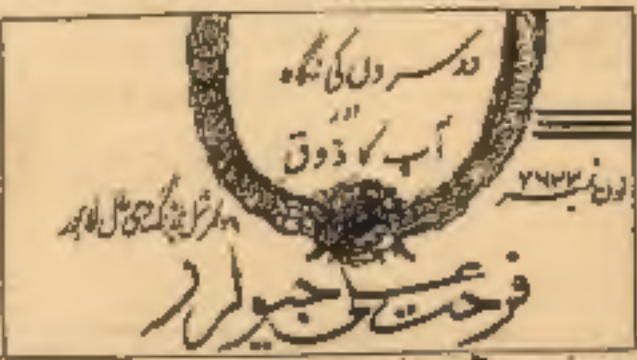 دوسروں کی نگاہ
اور
آپ کا ذوق
فون نمبر ۲۶۲۳
کمرشل بلڈنگ دی مال لاہور
فرحت علی جیولرز